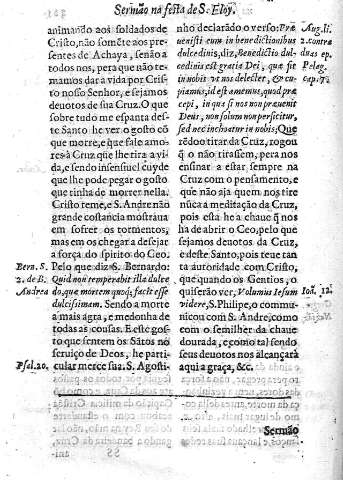 Sermão na festa de S. Eloy.
animando aos soldados de
Cristo, não sómẽte aos pre-
sentes de Achaya, senão a
todos nós, pera que não te-
mamos dar a vida por Cris-
to nosso Senhor, e sejamos
devotos de sua Cruz. O que
sobre tudo me espanta des-
te Santo he ver o gosto cõ
que morre, e que fale amo-
res à Cruz que lhe tira a vi-
da, e sendo insensiuel cuyde
que lhe pode pegar o gosto
que tinha de morrer nella.
Cristo teme, e S. Andre não
grande cõstancia mostraua
em sofrer os tormentos,
mas em os chegar a desejar
a força do spirito do Ceo.
Bern. S. Pelo que diz S. Bernardo:
2. de B. Quid non temperabit illa dulce
Andrea do, que mortem quoq; facit esse
dulcissimam. Sendo a morte
a mais agra, e medonha de
todas as cousas. E este gos-
to que sentem os Sãtos no
seruiço de Deos, he parti-
Psal. 20. cular merce sua. S. Agosti-
nho declarādo o verso: Præ Aug. li.
uenisti eum in benedictionibus 2. contra
dulcedinis, diz, Benedictio dul- duas ep.
cedinis est gratia Dei, quæ fit Pelag.
in nobis vt nos delectet, & cu- cap. 7.
piamus, id est amemus, quod præ
cepi, in qua si nos non præuenit
Deus, non solum non perficitur,
sed nec inchoatur in nobis; Que
rẽdo o tirar da Cruz, rogou
q̃ o não tirassem, pera nos
ensinar a estar sempre na
Cruz com o pensamento, e
que não aja quem nos tire
nũca a meditação da Cruz,
pois esta he a chaue q̃ nos
ha de abrir o Ceo, pelo que
sejamos deuotos da Cruz,
e deste Santo, pois teue tan
ta autoridade com Cristo,
que quando os Gentios, o
quiserão ver, Volumus Iesum Ioã. 12.
videre, S. Philipe, o commu-
nicou com S. Andre, como
com o semilher da chaue
dourada, e como tal sendo
seus deuotos nos alcançará
aqui a graça, &c.
Sermão